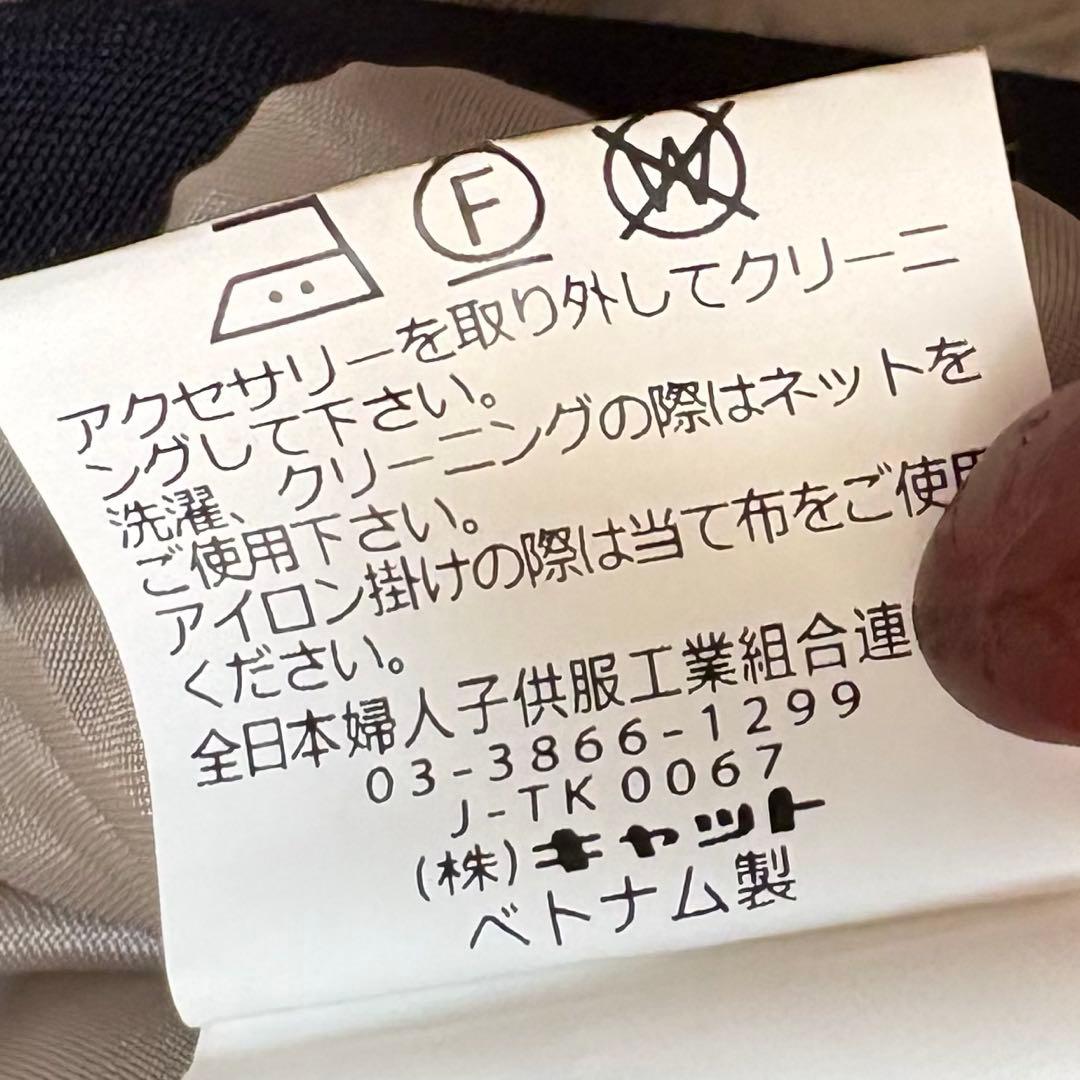 F
W
アクセサリーを取り外してクリーニ
ングして下さい。
洗濯、クリーニングの際はネットを
ご使用下さい。
アイロン掛けの際は当て布をご使用
ください。
全日本婦人子供服工業組合連
03-3866-1299
J-TK0067
(株)キャット
ベトナム製